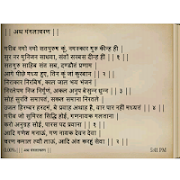 || अथ मंगलाचरण ||
गरीब नमो नमो सतपुरूष कूं, नमस्कार गुरू कीन्ह ही |
सुर नर मुनिजन साधवा, संतों सरबस दीन्ही ||१||
सतगुरु साहिब संत सब, दण्डौतं प्रणाम
आगे पीछे मध्य हुए, तिन कूं जां कुरबान ||२||
निराकार निरविषं, काल जाल भय भंजनं
निरलेपं निज निर्गुणं, अकल अनूप बेसुन्न धुनं ||३||
सोहं सुरति समापतं, सकल समाना निरतै
उजल हिरंबर हरदमं, बे परवाह अथाह है, वार पार नहीं मध्यतं ||४||
गरीब जो सुमिरत सिद्धि होई, गणनायक गलताना
करो अनुग्रह सोई, पारस पद प्रवाना ||५||
आदि गणेश मनाऊं, गण नायक देवन देवा
चरण कमल ल्यौ लाऊं, आदि अंत करहूं सेवा ||६||
|| अथ मंगलाचरण ||